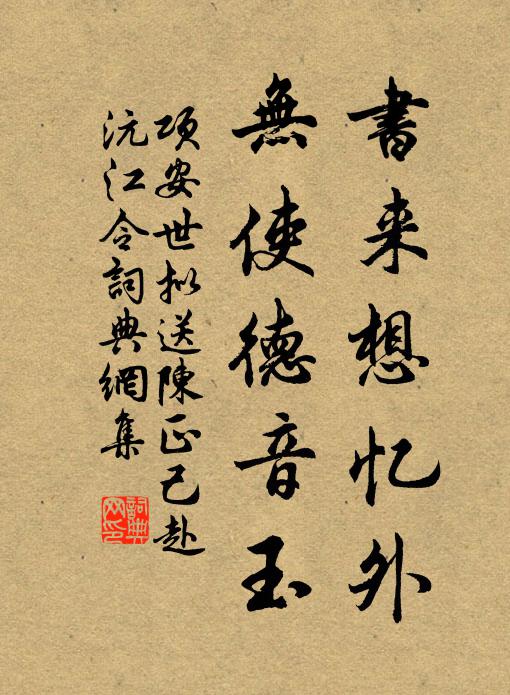 書来想忆外
無使德音玉
項安世拟送陳正己赴
沅江令詞典網集
詞典
网印